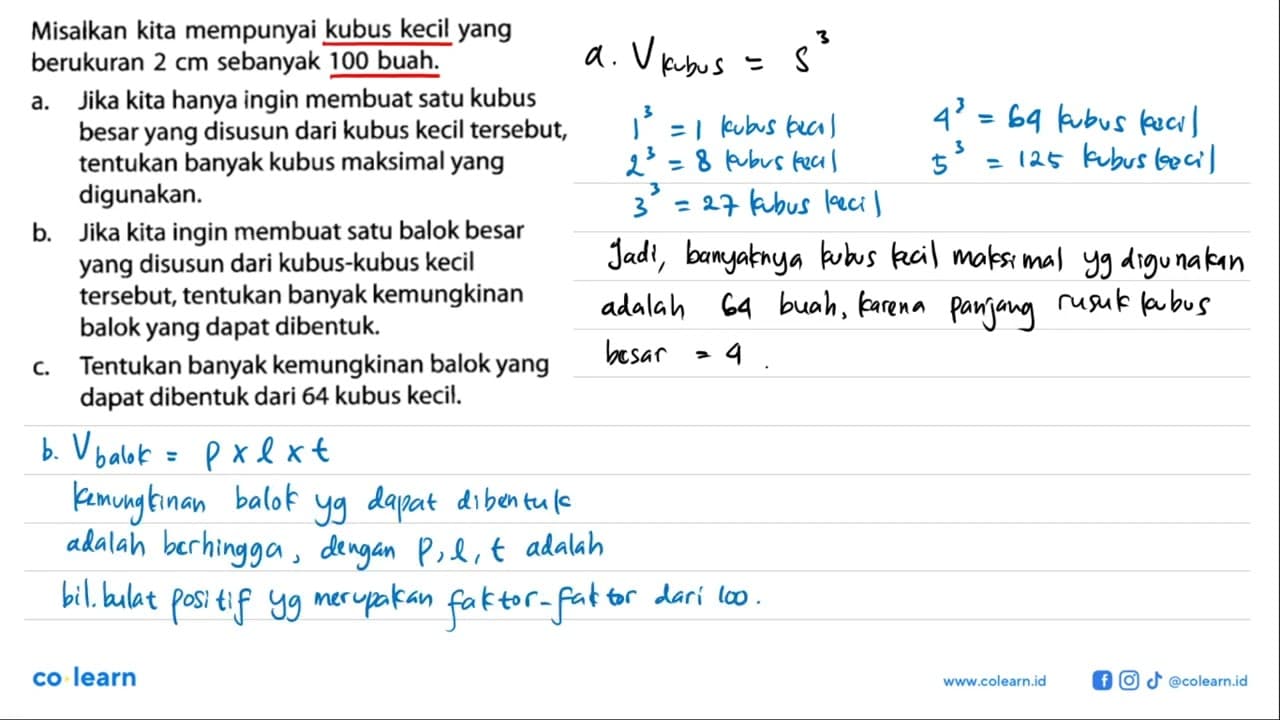 Misalkan kita mempunyai kubus kecil yang
berukuran 2 cm sebanyak 100 buah.
a. Jika kita hanya ingin membuat satu kubus
besar yang disusun dari kubus kecil tersebut,
tentukan banyak kubus maksimal yang
digunakan.
b. Jika kita ingin membuat satu balok besar
yang disusun dari kubus-kubus kecil
tersebut, tentukan banyak kemungkinan
balok yang dapat dibentuk.
c. Tentukan banyak kemungkinan balok yang
dapat dibentuk dari 64 kubus kecil.
a. V kubus = s³
1³ = 1 kubus kecil
2³ = 8 kubus kecil
3³ = 27 kubus kecil
4³ = 64 kubus kecil
5³ = 125 kubus kecil
Jadi, banyaknya kubus kecil maksimal yg digunakan
adalah 64 buah, karena panjang rusuk kubus
besar = 4.
b. V balok = p x l x t
kemungkinan balok yg dapat dibentuk
adalah berhingga, dengan p, l, t adalah
bil. bulat positif yg merupakan faktor-faktor dari 100.
co·learn
www.colearn.id
@colearn.id